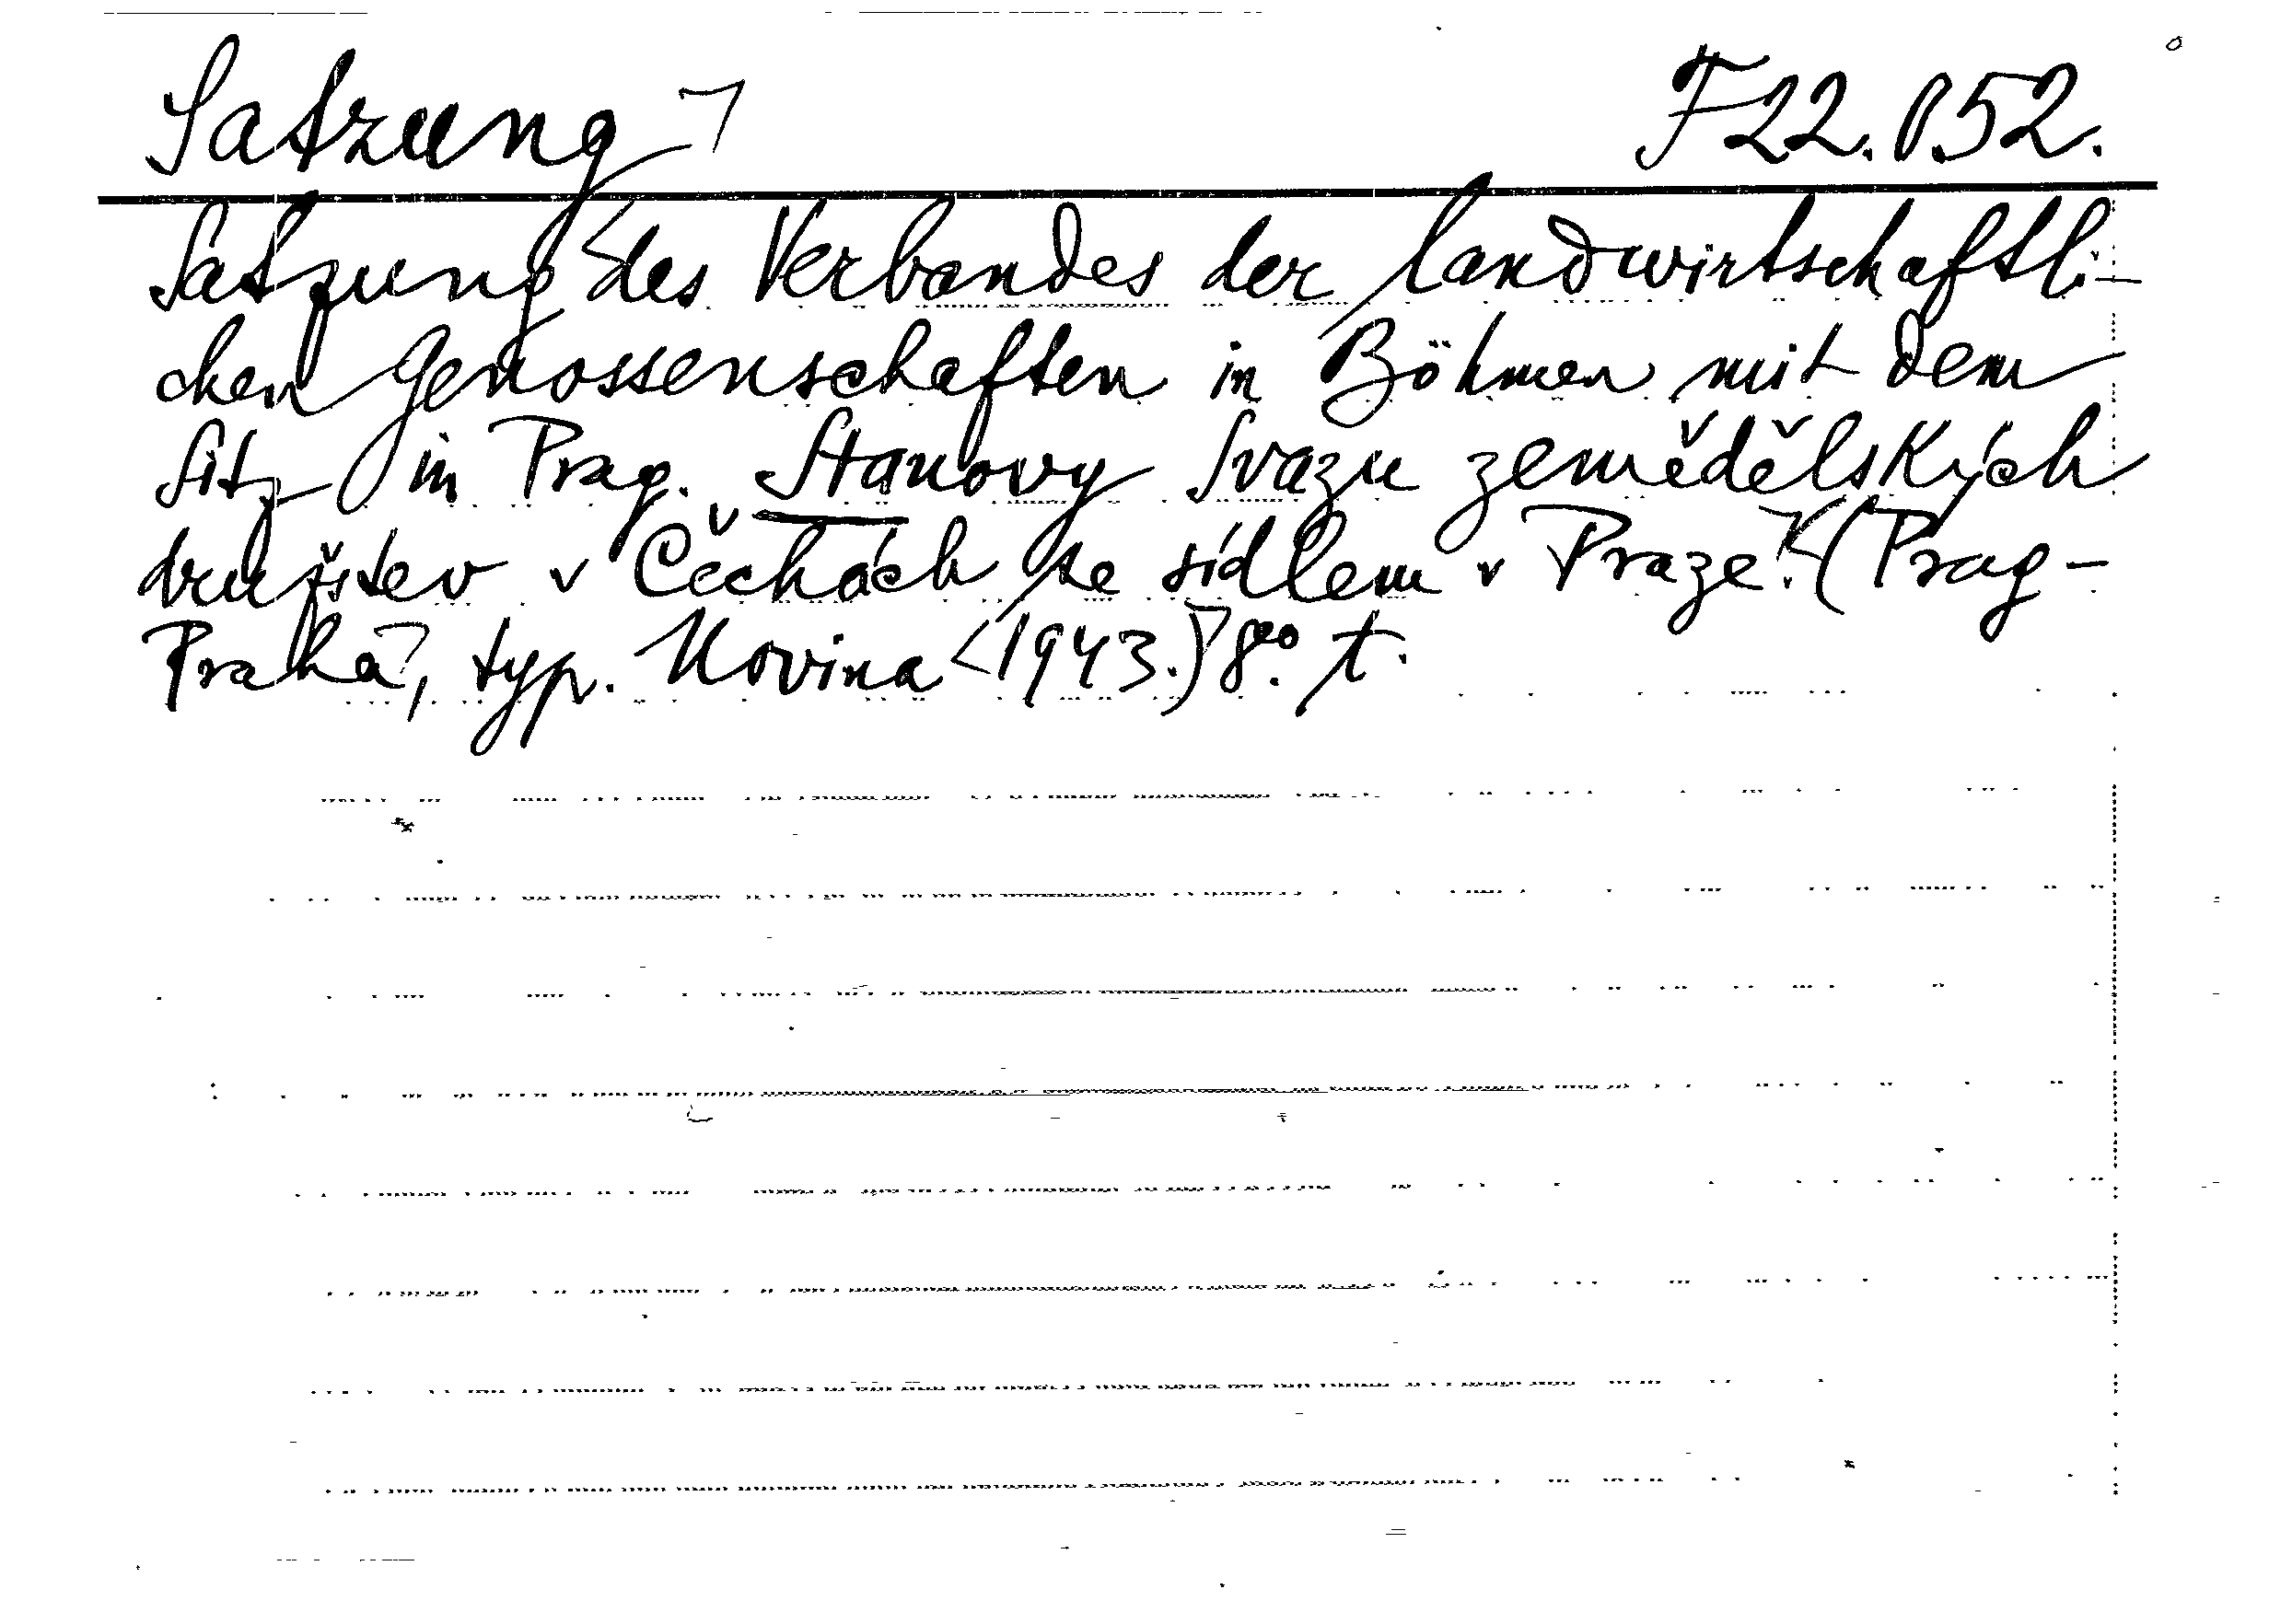 Satzung ┐ F 22.052.
Satzung < des Verbandes der landwirtschaftli-
chen Genossenschaften in Böhmen mit dem
Sitz in Prag. Stanovy Svazu zemědělských
družstev v Čechách se sídlem v Praze. (Prag-
Praha, typ. Novina <1943.) 8°. t.